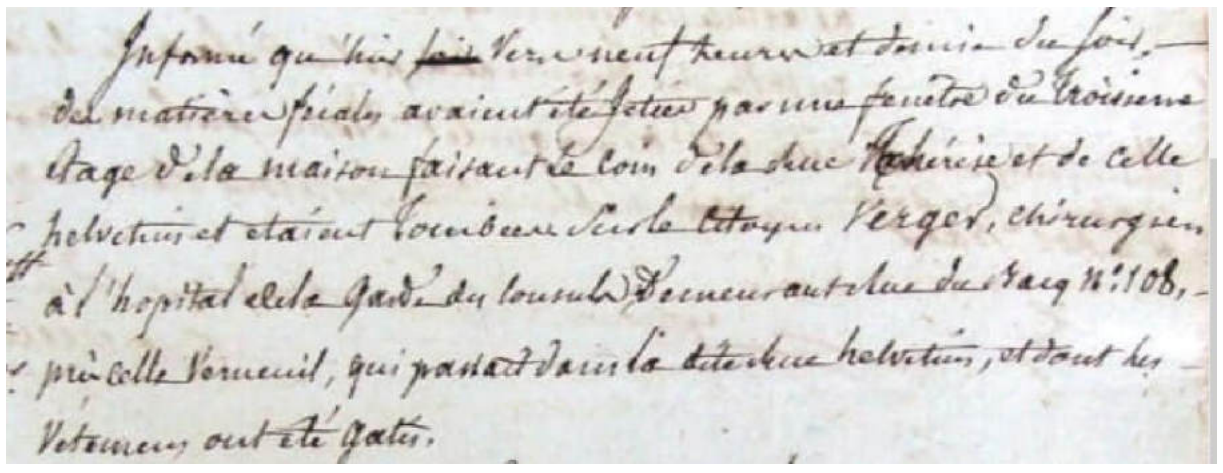 Informé qu'hier soir vers neuf heures et demie du soir,
des matières fécales avaient été Jettées par une fenêtre du troisieme
etage de la maison faisant le coin de la rue Thérèse et de celle
helvetius et etaient tombées sur le Citoyen Verger, chirurgien
à l'hopital de la Garde des Consuls, Demeurant rue du Bacq N.° 108,
près celle Verneuil, qui passait dans la dite rue helvetius, et dont les
Vetemens ont été gatés.